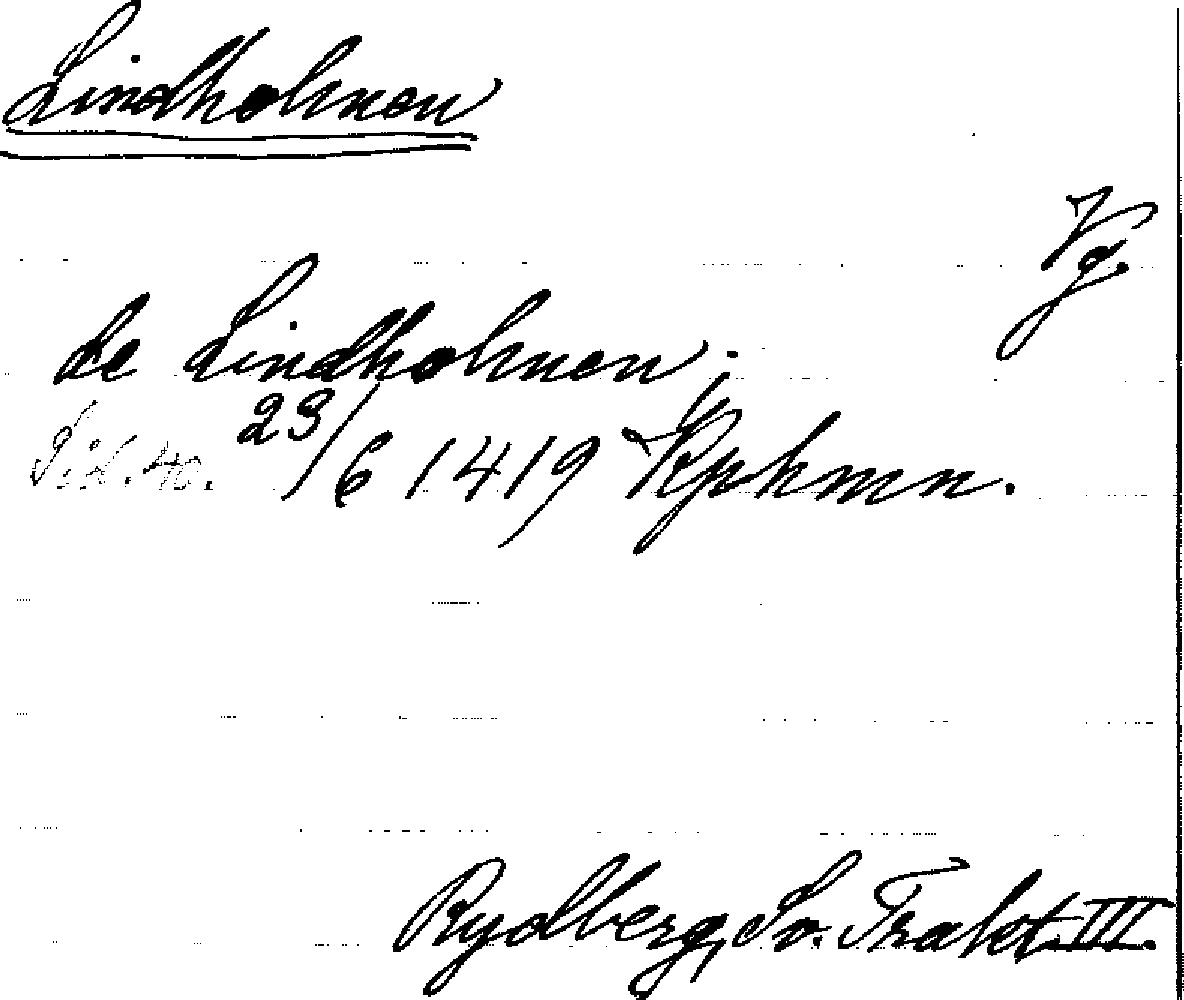 Lindholmen
Vg.
de Lindholmen;
23/6 1419 Kphmn.
Rydberg, Sv. Trakt. III.